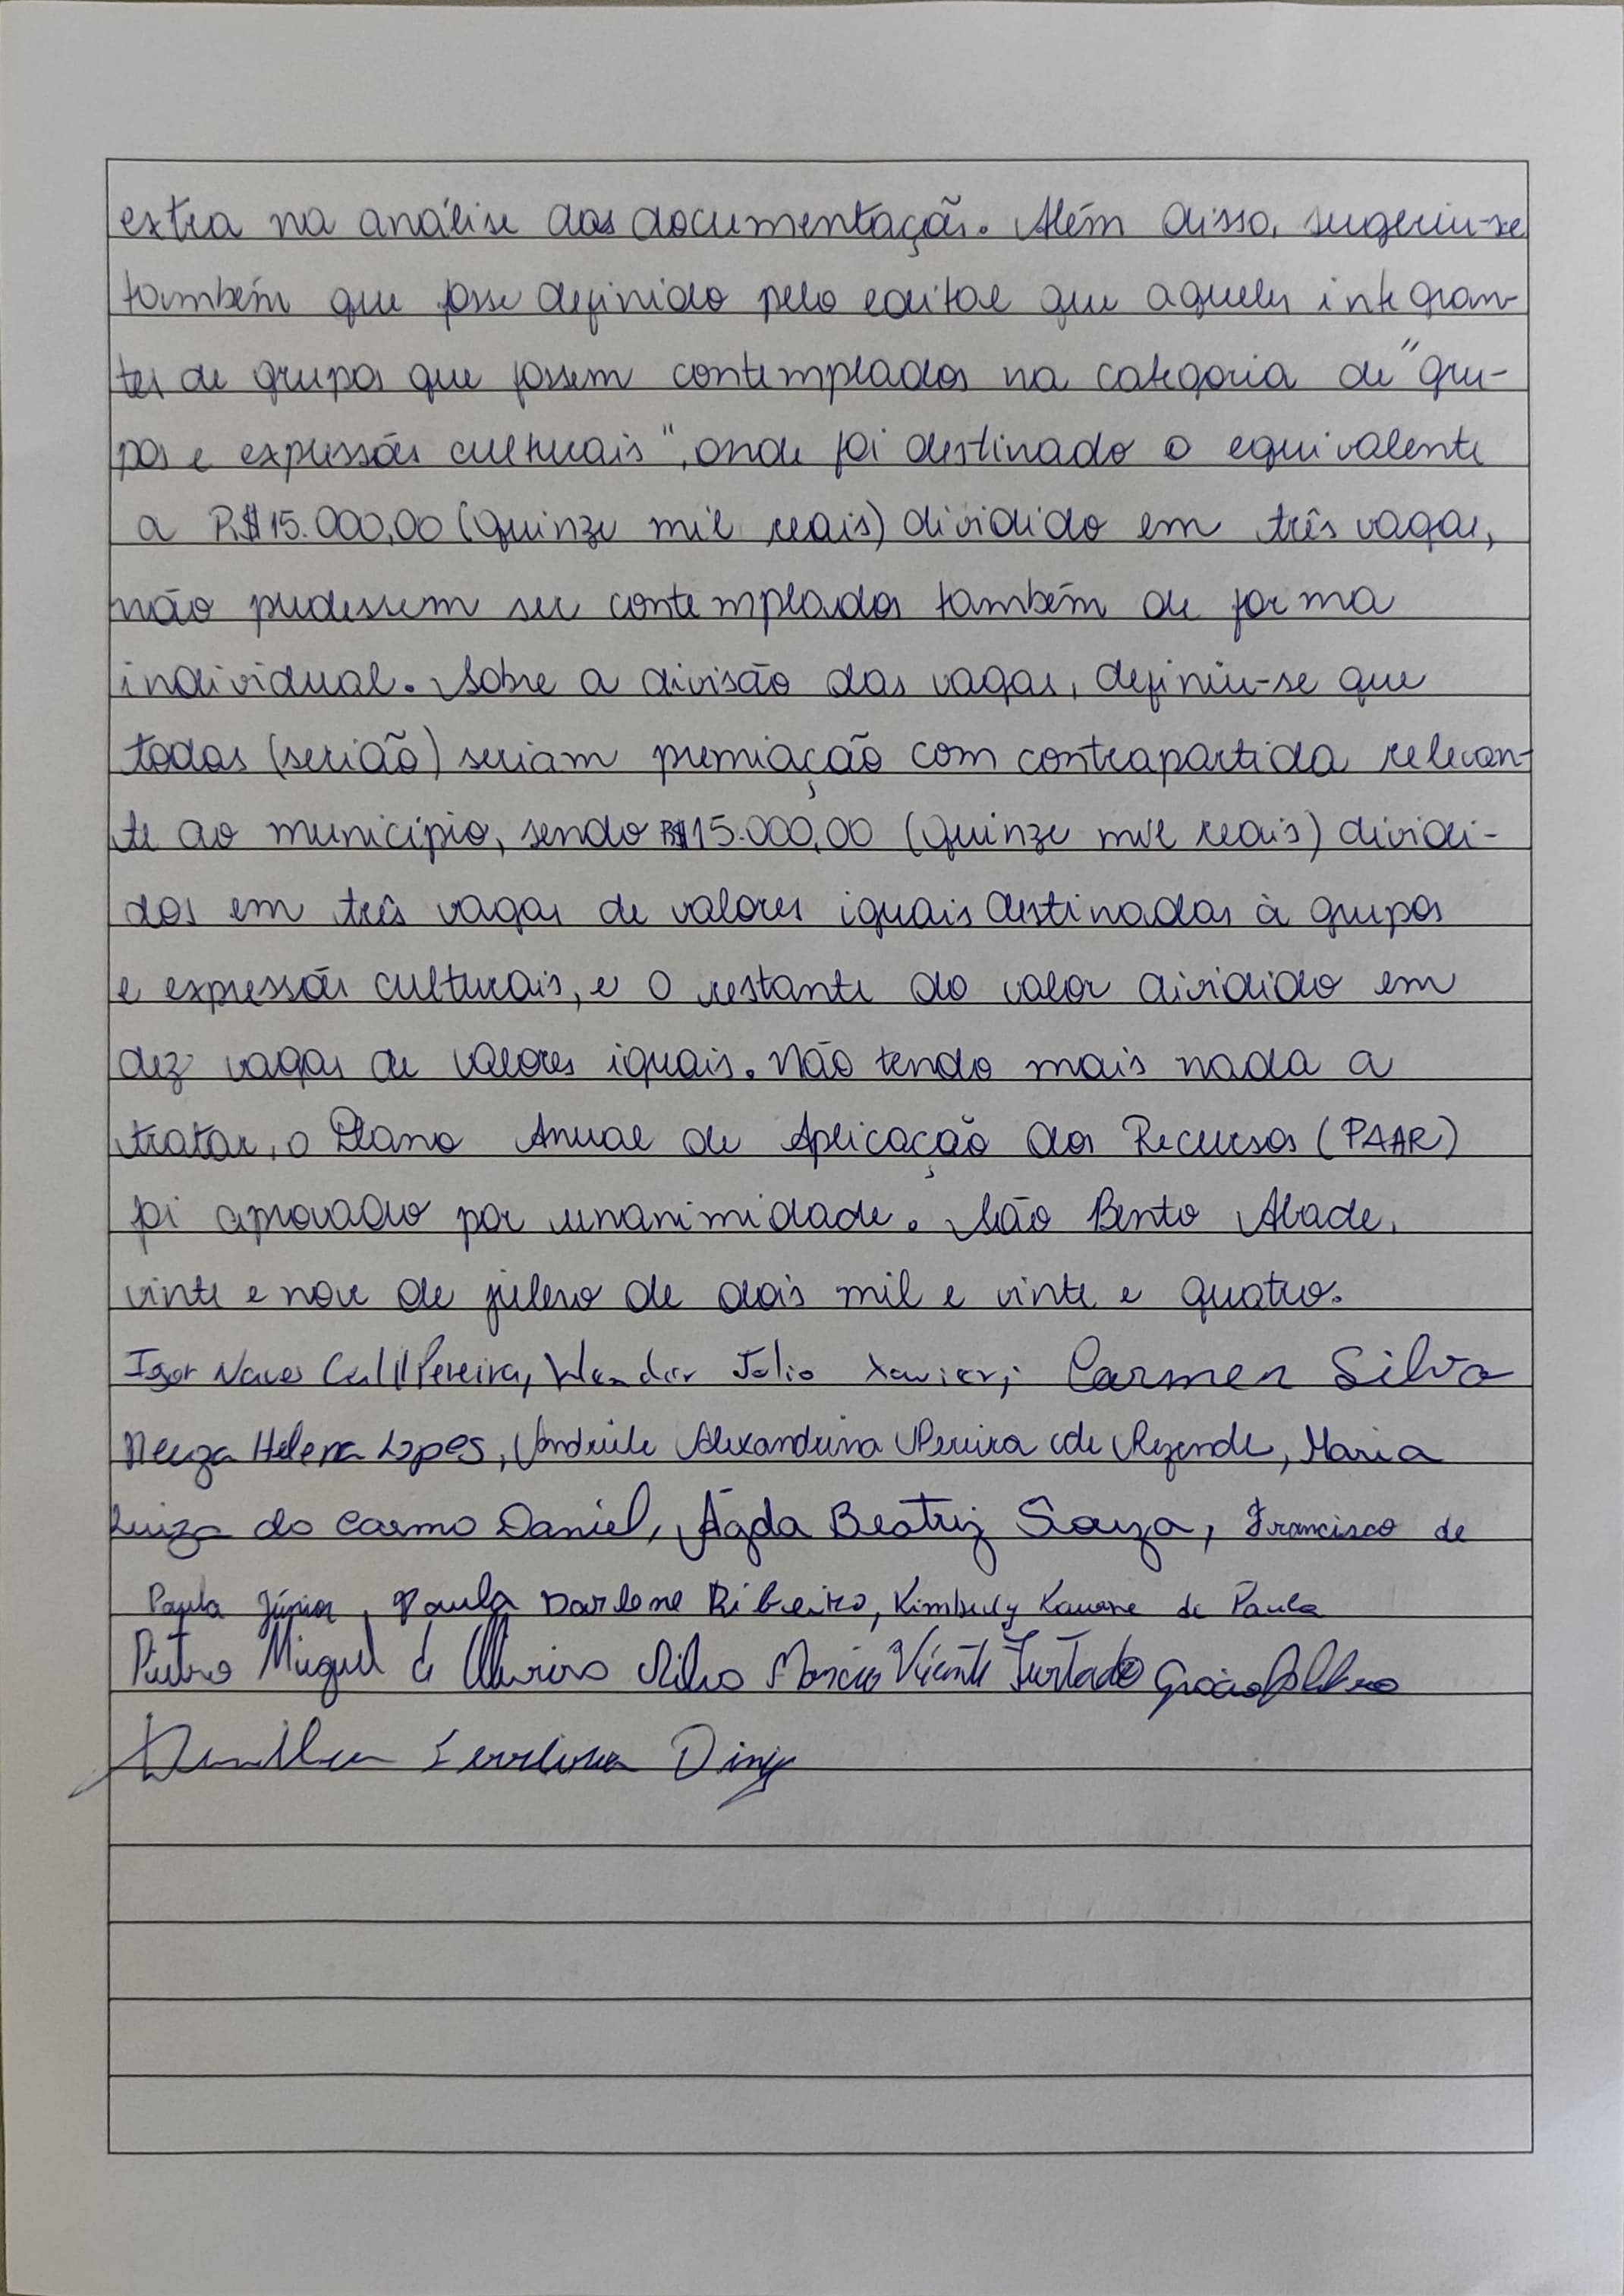 extra na análise das documentação. Além disso, sugeriu-se
também que fosse definido pelo edital que aqueles integran-
tes de grupos que fossem contemplados na categoria de "gru-
pos e expressões culturais", onde foi destinado o equivalente
a R$15.000,00 (quinze mil reais) dividido em três vagas,
não pudessem ser contemplados também de forma
individual. Sobre a divisão das vagas, definiu-se que
todas (serião) seriam premiação com contrapartida relevan-
te ao município, sendo R$15.000,00 (quinze mil reais) dividi-
dos em três vagas de valores iguais destinadas à grupos
e expressões culturais, e o restante do valor dividido em
dez vagas de valores iguais. Não tendo mais nada a
tratar, o Plano Anual de Aplicação dos Recursos (PAAR)
foi aprovado por unanimidade. São Bento Abade,
vinte e nove de julho de dois mil e vinte e quatro.
Igor Naves Pereira, Wander Julio Xavier; Carmen Silva
Neuza Helena Lopes, Alexandrina Pereira de Rezende, Maria
Luiza do Carmo Daniel, Ágda Beatriz Souza, Francisco de
Paula Júnior, Paula Darlene Ribeiro, Kimberly Kauane de Paula
Pietro Miguel de Oliveira Silva Marcio Vicente Furtado
Diniz